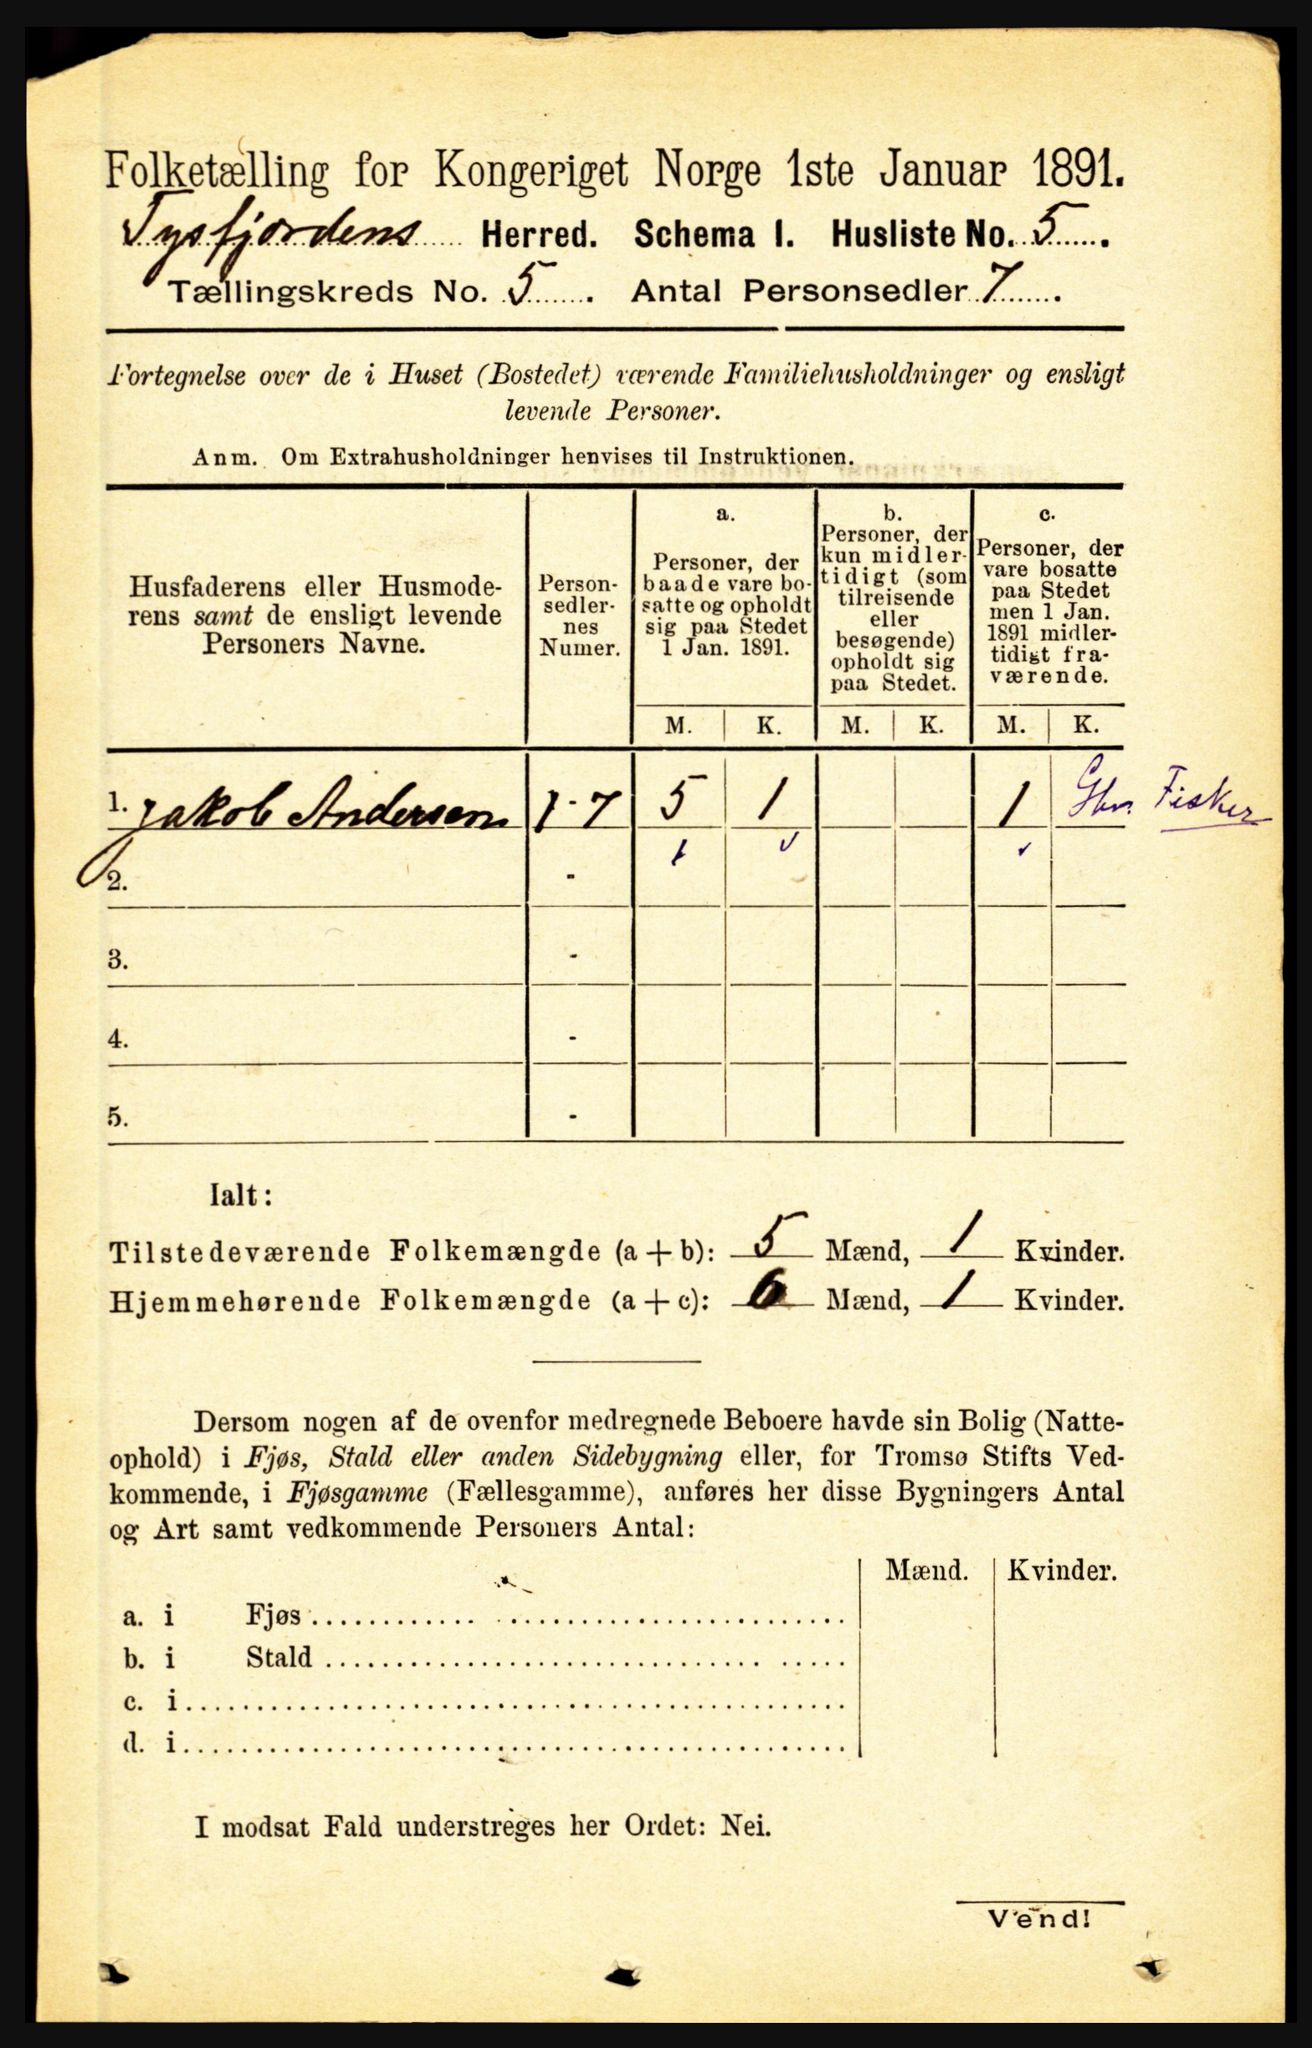 Folketælling for Kongeriget Norge 1ste Januar 1891.
Tysfjordens Herred. Schema I. Husliste No. 5.
Tællingskreds No. 5. Antal Personsedler 7.
Fortegnelse over de i Huset (Bostedet) værende Familiehusholdninger og ensligt
levende Personer.
Anm. Om Extrahusholdninger henvises til Instruktionen.
Husfaderens eller Husmode-
rens samt de ensligt levende
Personers Navne.
Person-
sedler-
nes
Numer.
a.
Personer, der
baade vare bo-
satte og opholdt
sig paa Stedet
1 Jan. 1891.
b.
Personer, der
kun midler-
tidigt (som
tilreisende
eller
besøgende)
opholdt sig
paa Stedet.
c.
Personer, der
vare bosatte
paa Stedet
men 1 Jan.
1891 midler-
tidigt fra-
værende.
M. K. M. K. M. K.
1. Jakob Andersen 1-7 5 1 1 Fisker
2. -
3. -
4. -
5. -
Ialt:
Tilstedeværende Folkemængde (a+b): 5 Mænd, 1 Kvinder.
Hjemmehørende Folkemængde (a+c): 6 Mænd, 1 Kvinder.
Dersom nogen af de ovenfor medregnede Beboere havde sin Bolig (Natte-
ophold) i Fjøs, Stald eller anden Sidebygning eller, for Tromsø Stifts Ved-
kommende, i Fjøsgamme (Fællesgamme), anføres her disse Bygningers Antal
og Art samt vedkommende Personers Antal:
Mænd. Kvinder.
a. i Fjøs
b. i Stald
c. i
d. i
I modsat Fald understreges her Ordet: Nei.
Vend!